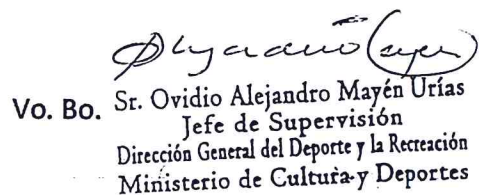 Vo. Bo. Sr. Ovidio Alejandro Mayén Urías
Jefe de Supervisión
Dirección General del Deporte y la Recreación
Ministerio de Cultura y Deportes